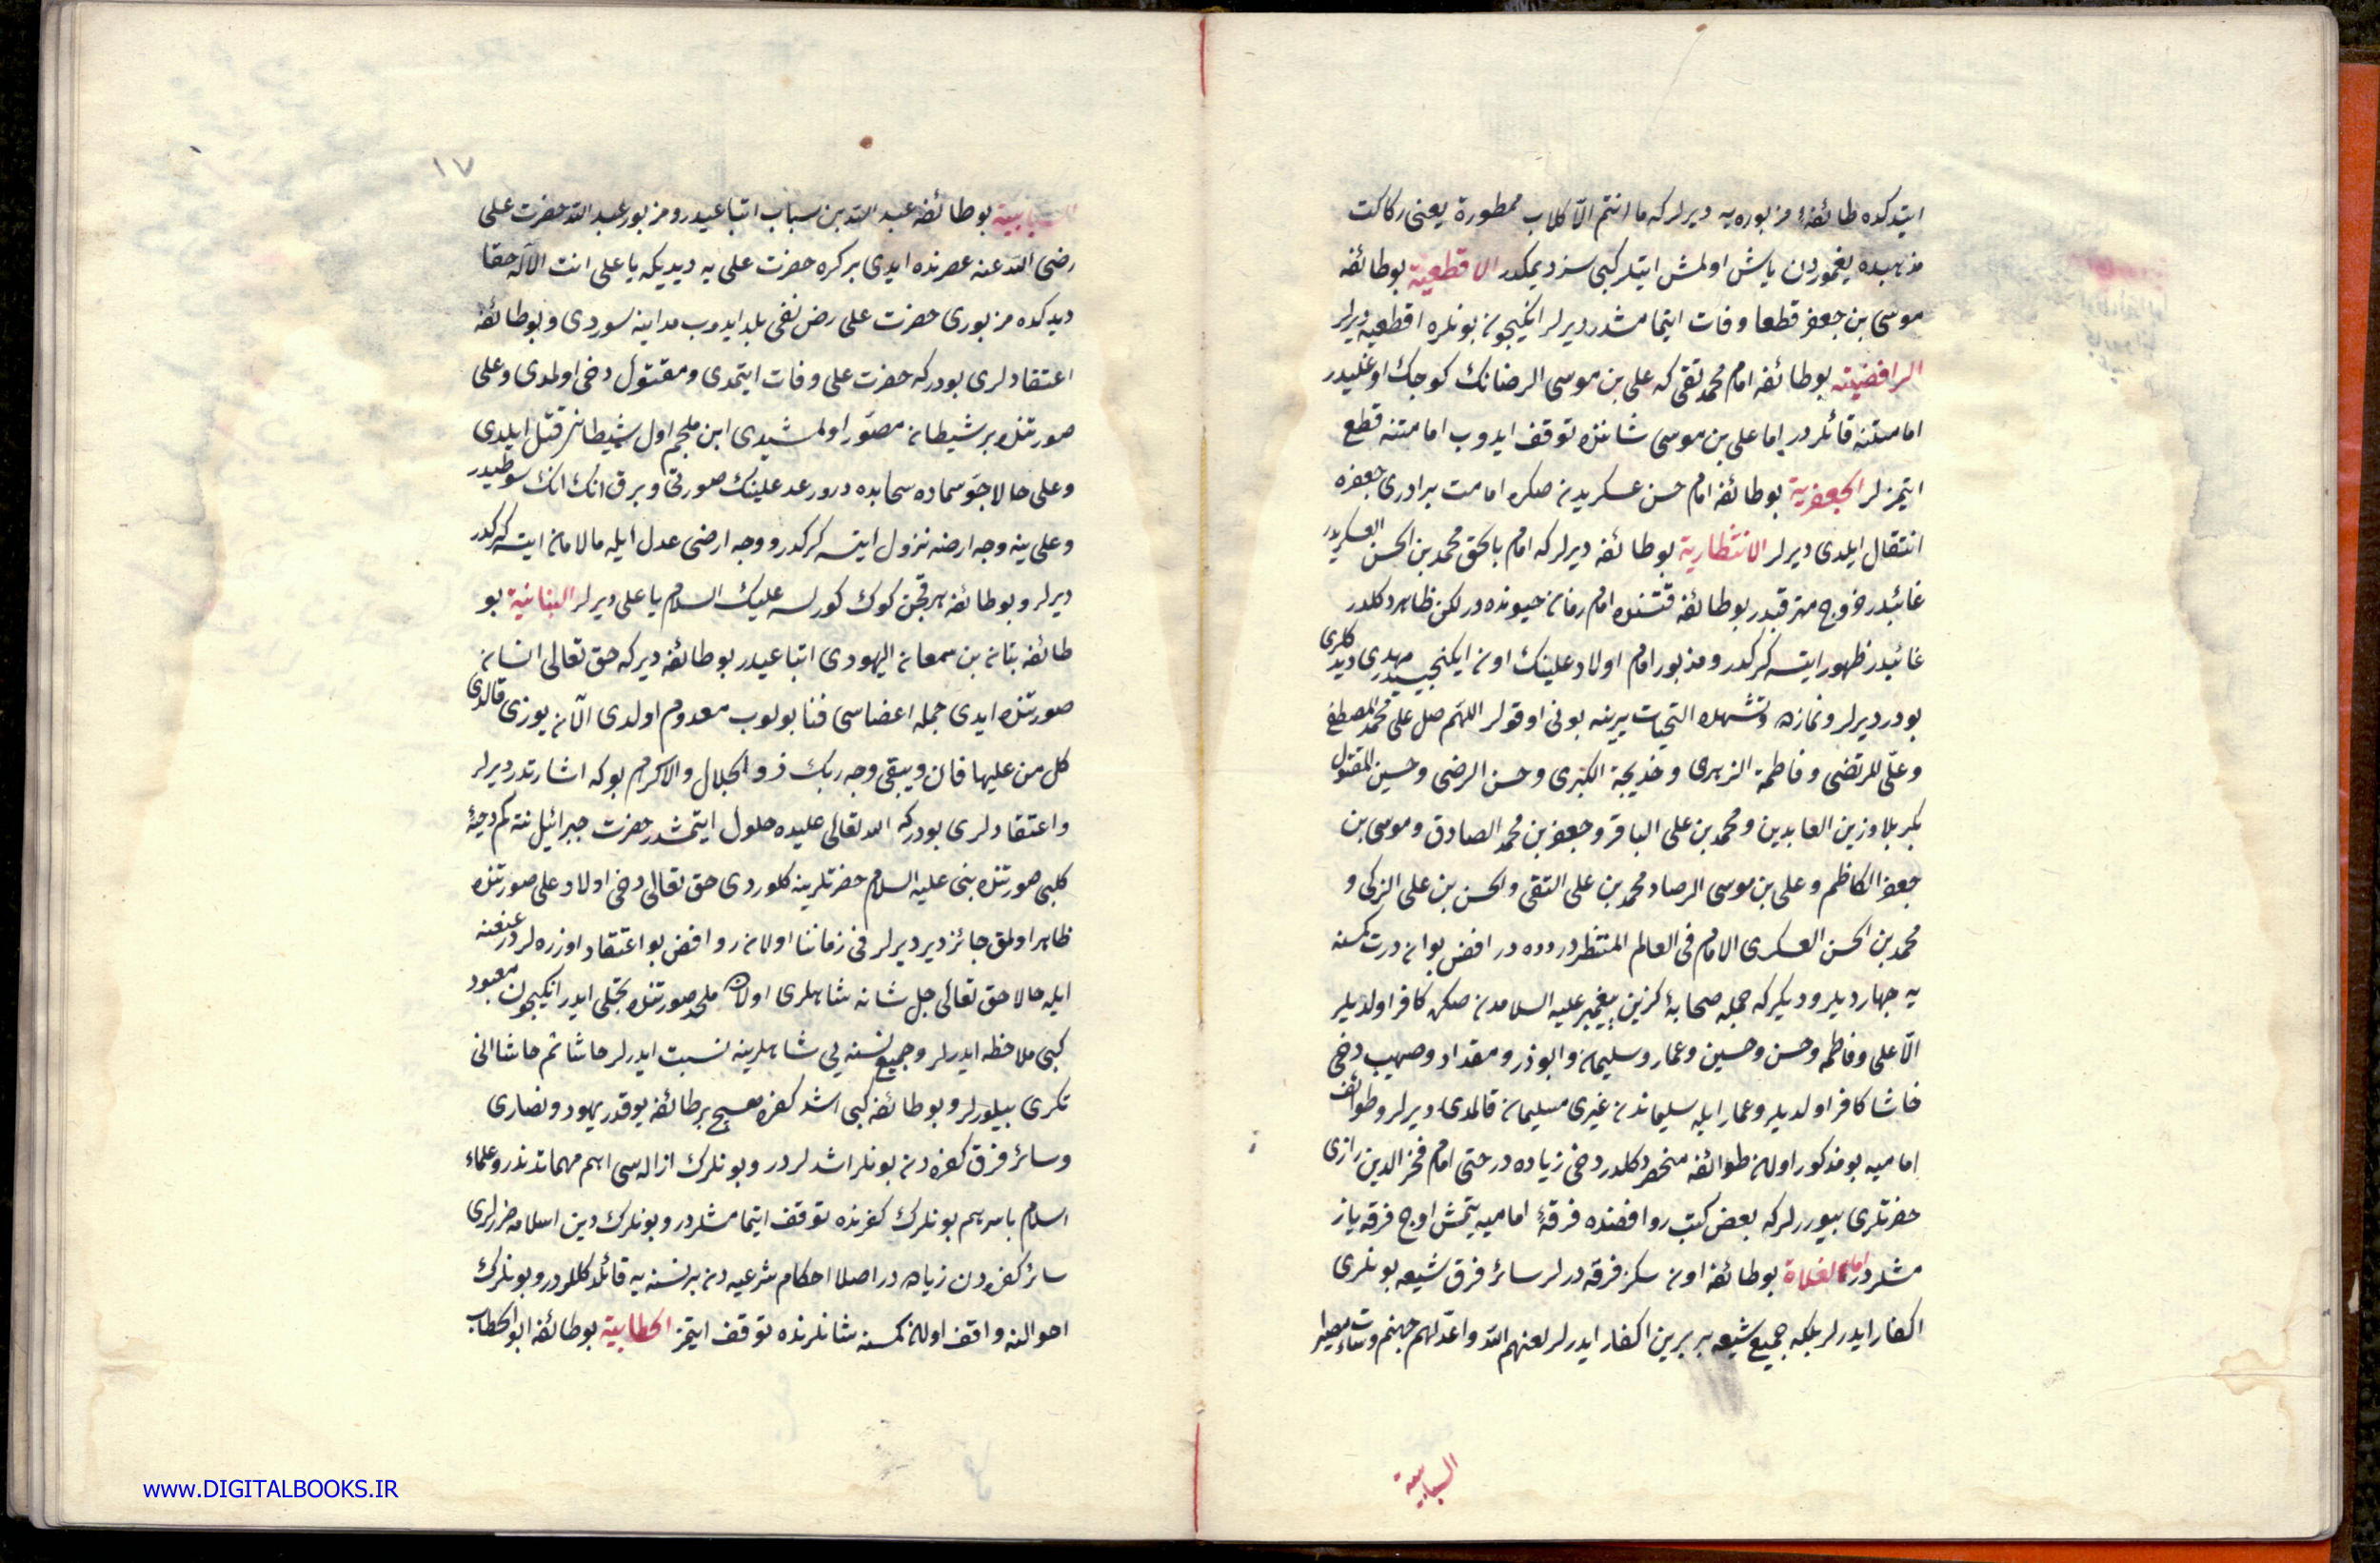 ایتدکده طائفهٔ مزبوره یه دیرلر که ما انتم الّا کلاب ممطورة یعنی رکاکت
مذهبده یغموردن یاش اولمش ایتلر کبی سز دیمکدر الاقطعیة بو طائفه
موسی بن جعفر قطعا وفات ایتمامشدر دیرلر انکیچون بونلره اقطعیه دیرلر
الرافضیته بو طائفه امام محمد تقی که علی بن موسی الرضانک کوجک اوغلیدر
امامتنه قائلردر اما علی بن موسی شاننده توقف ایدوب امامتنه قطع
ایتمزلر الجعفریة بو طائفه امام حسن عسکریدن صکره امامت برادری جعفره
انتقال ایلدی دیرلر الانتظاریة بو طائفه دیرلر که امام بالحق محمد بن الحسن العسکریدر
غائبدر خروج مترقبدر بو طائفه قتنده امام زمان حیونده در لکن ظاهر دکلدر
غائبدر ظهور ایتسه کرکدر ومزبور امام اولاد علینک اون ایکنجیسیدر مهدی دیدکلری
بودر دیرلر ونمازه وتشهده التحیات یرینه بونی اوقولر اللهم صل علی محمد المصطفی
وعلی المرتضی وفاطمة الزهری وخدیجة الکبری وحسن الرضی وحسین المقتول
بکربلا وزین العابدین ومحمد بن علی الباقر وجعفر بن محمد الصادق وموسی بن
جعفر الکاظم وعلی بن موسی الرضا ومحمد بن علی التقی والحسن بن علی الزکی و
محمد بن الحسن العسکری الامام فی العالم المنتظر در روافض بو اون درت کمسنه
یه چهار دیرلر ودیکر که جمله صحابهٔ کزین پیغمبر علیه السلامدن صکره کافر اولدیلر
الّا علی وفاطمه وحسن وحسین وعمار وسلیمان وابوذر ومقداد وصهیب دخی
حاشا کافر اولدیلر وعمار ایله سلیماندن غیری مسلیمان قالمدی دیرلر وطوائف
امامیه بو مذکور اولان طوائفه منحصر دکلدر دخی زیاده در حتی امام فخر الدین رازی
حضرتلری بیوررلر که بعض کتب روافضده فرقهٔ امامیه یتمش اوچ فرقه یاز
مشلردر اما الغلاة بو طائفه اون سکز فرقه درلر سائر فرق شیعه بونلری
اکفار ایدرلر بلکه جمیع شیعه بر برین اکفار ایدرلر لعنهم الله واعدّ لهم جهنم وساءت مصیرا
السبابیة
١٧
السبابیة بو طائفه عبد الله بن سباب اتباعیدر ومزبور عبد الله حضرت علی
رضی الله عنه عصرنده ایدی بر کره حضرت علی یه دیدیکه یا علی انت الآله حقا
دیدکده مزبوری حضرت علی رض نفی بلد ایدوب مداینه سوردی وبو طائفه
اعتقادلری بودر که حضرت علی وفات ایتمدی ومقتول دخی اولمدی وعلی
صورتنده بر شیطان مصوّر اولمشیدی ابن ملجم اول شیطانی قتل ایلدی
وعلی حالا جوّ سماده سحابده در ورعد علینک صورتی وبرق انک سوطیدر
وعلی ینه وجه ارضه نزول ایتسه کرکدر ووجه ارضی عدل ایله مالامال ایتسه کرکدر
دیرلر وبو طائفه هر قچن کوک کورلسه علیک السلام یا علی دیرلر البنانیة بو
طائفه بنان بن سمعان الیهودی اتباعیدر بو طائفه دیر که حق تعالی انسان
صورتنده ایدی جمله اعضاسی فنا بولوب معدوم اولدی الّا یوزی قالدی
کل من علیها فان ویبقی وجه ربک ذو الجلال والاکرام بوکه اشارتدر دیرلر
واعتقادلری بودر که الله تعالی علیده حلول ایتمشدر حضرت جبرائیل نته کم دحیهٔ
کلبی صورتنده نبی علیه السلام حضرتلرینه کلوردی حق تعالی دخی اولاد علی صورتنده
ظاهر اولمق جائزدیر دیرلر فی زماننا اولان روافض بو اعتقاد اوزره لردر
ایله حالا حق تعالی جل شانه شاهلری اولان ملحد صورتنده تجلی ایدر انکیچون معبود
کبی ملاحظه ایدرلر وجمیع نسنه یی شاهلرینه نسبت ایدرلر حاشا ثم حاشا انی
تکری بیلورلر وبو طائفه کبی اشد کفره صحیح بر طائفه یوقدر یهود ونصاری
وسائر فرق کفره دن بونلر اشدلردر وبونلرک ازاله سی اهم مهماتدندر وعلماء
اسلام باسرهم بونلرک کفرنده توقف ایتمامشلردر وبونلرک دین اسلامه ضررلری
سائر کفره دن زیاده در اصلا احکام شرعیه دن بر نسنه یه قائل دکللردر وبونلرک
احوالنه واقف اولان کمسنه شانلرنده توقف ایتمز الخطابیة بو طائفه ابو الخطاب
www.DIGITALBOOKS.IR